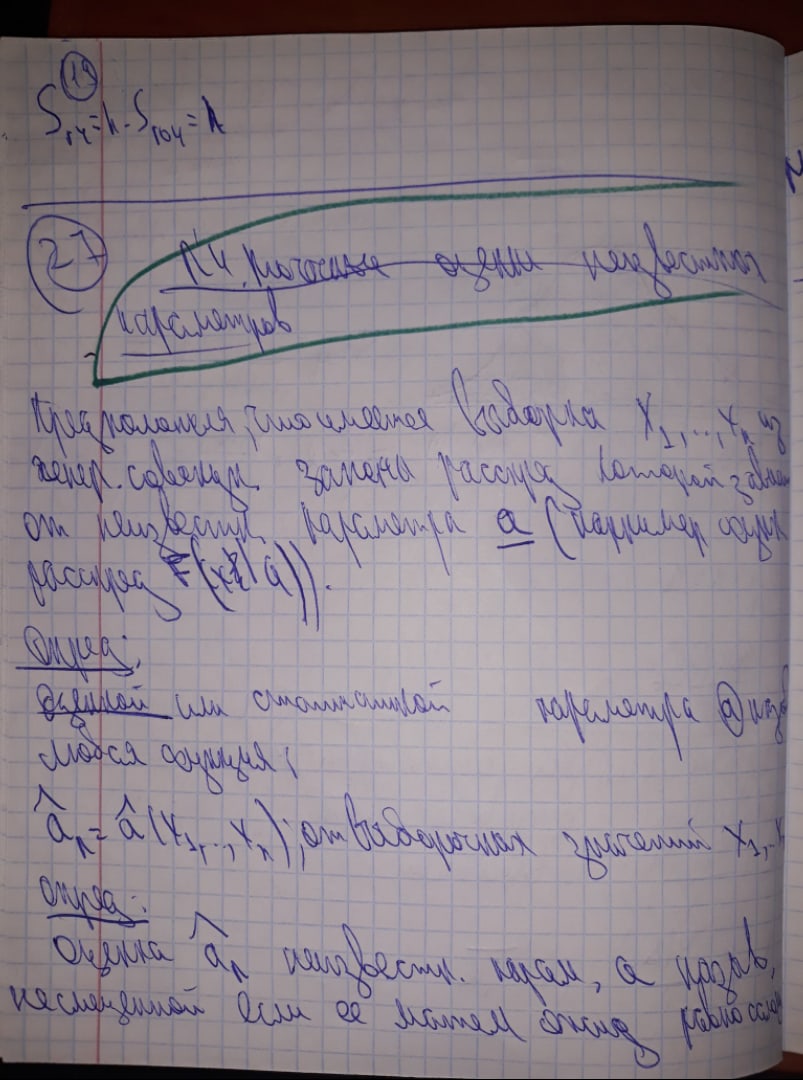 19
27
п4. Точечные оценки неизвестных
параметров
Предположения, что имеется выборка X₁,..,Xₙ из
генер. совокуп. законы распред которой
от неизвестн. параметра a (например функ
распред F(x | a)).
Опред:
оценкой или статистикой параметра a
любая функция;
âₙ = â(X₁,..,Xₙ); от выборочных значений X₁,.
опред:
оценка âₙ неизвестн. парам, a назыв,
несмещенной если ее матем ожид равно